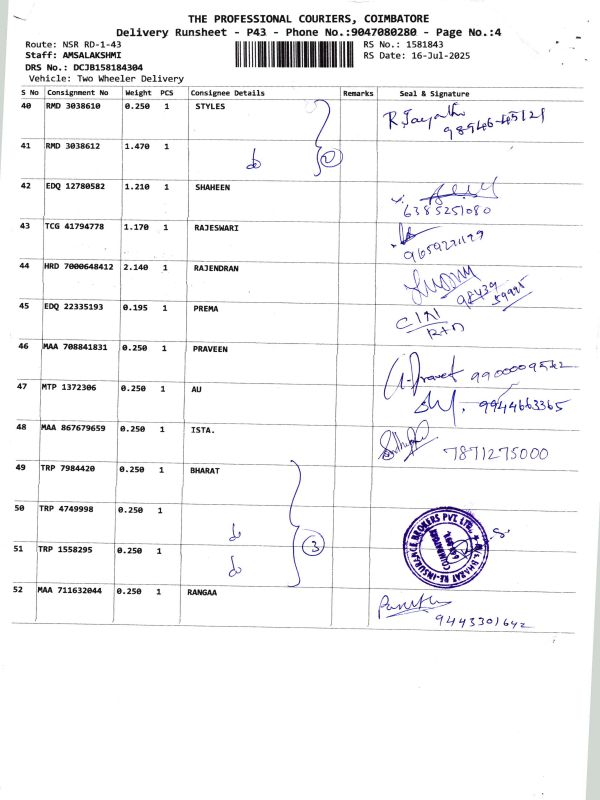 THE PROFESSIONAL COURIERS, COIMBATORE
Delivery Runsheet - P43 - Phone No.:9047080280 - Page No.:4
Route: NSR RD-1-43 RS No.: 1581843
Staff: AMSALAKSHMI RS Date: 16-Jul-2025
DRS No.: DCJB158184304
Vehicle: Two Wheeler Delivery
S No Consignment No Weight PCS Consignee Details Remarks Seal & Signature
40 RMD 3038610 0.250 1 STYLES
98946-45121
41 RMD 3038612 1.470 1 do 2
42 EDQ 12780582 1.210 1 SHAHEEN
6385251080
43 TCG 41794778 1.170 1 RAJESWARI
44 HRD 7000648412 2.140 1 RAJENDRAN
98439
59995
45 EDQ 22335193 0.195 1 PREMA
C/N
RTD
46 MAA 708841831 0.250 1 PRAVEEN
47 MTP 1372306 0.250 1 AU 9944663365
48 MAA 867679659 0.250 1 ISTA. 7871275000
49 TRP 7984420 0.250 1 BHARAT
50 TRP 4749998 0.250 1 do
51 TRP 1558295 0.250 1 do 3
M/s. BHARAT RE-INSURANCE BROKERS PVT. LTD.
52 MAA 711632044 0.250 1 RANGAA
9443301642